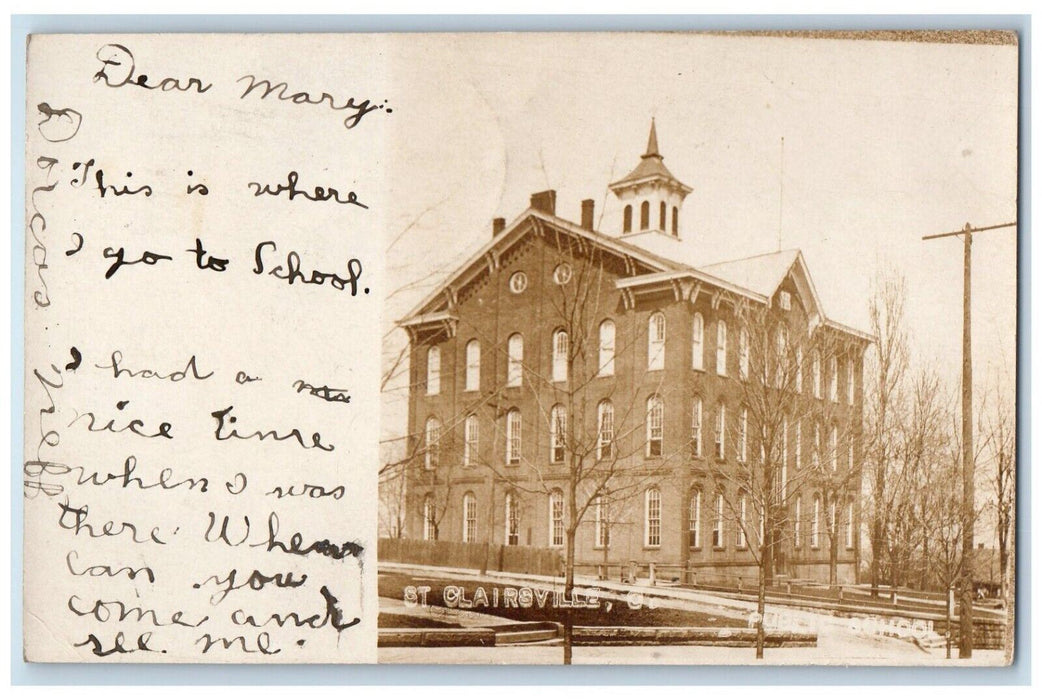 Dear Mary:
This is where
I go to School.
I had a
nice time
when I was
there. When
can you
come and
see me.
Dorcas Neff
ST CLAIRSVILLE, O.
PUBLIC SCHOOL